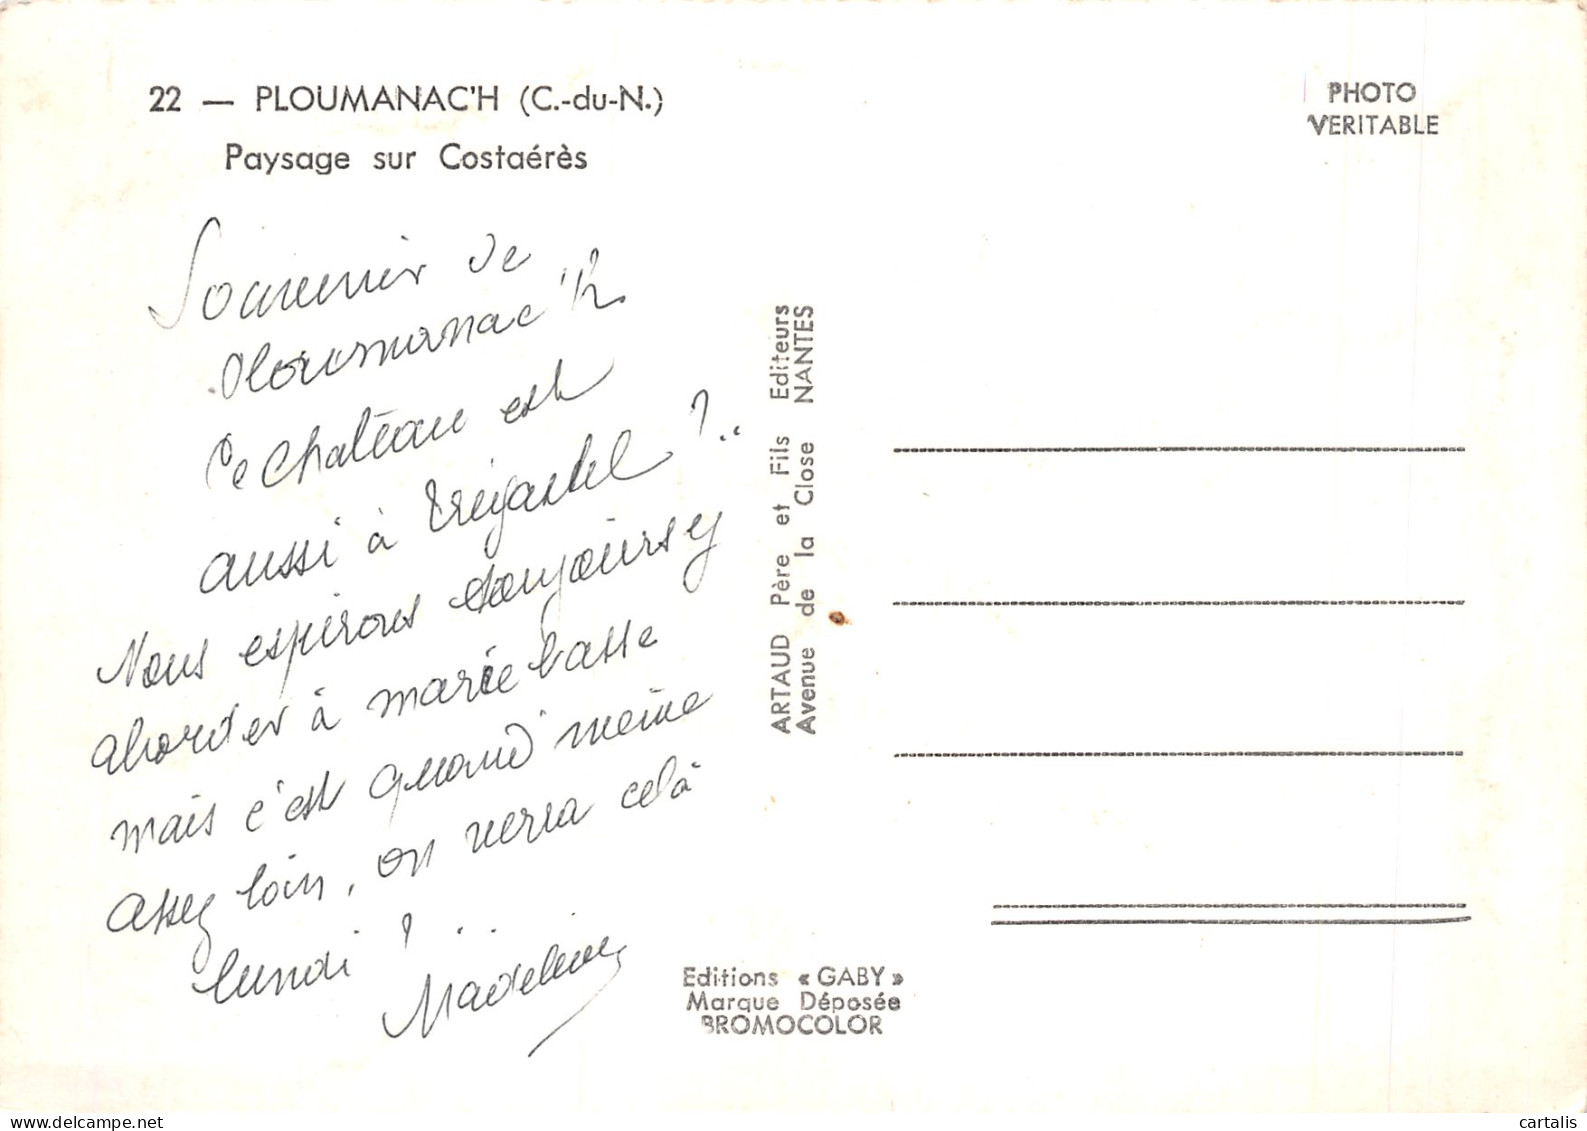 22 — PLOUMANAC'H (C.-du-N.)
Paysage sur Costaérès
PHOTO
VERITABLE
Souvenir de
Ploumanac'h.
Ce chateau est
aussi à Trégastel ?..
Nous espérons toujours y
aborder à marée basse
mais c'est quand même
assez loin, on verra celà
lundi ? ..
Madeleine
ARTAUD Père et Fils Editeurs
Avenue de la Close NANTES
Editions « GABY »
Marque Déposée
BROMOCOLOR
cartalis